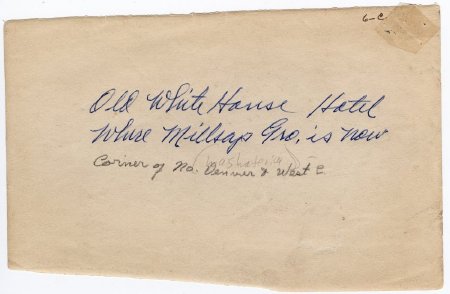 6-C
Old White House Hotel
Where Millsap Gro. is now
(Washington)
Corner of No. Denver & West E.